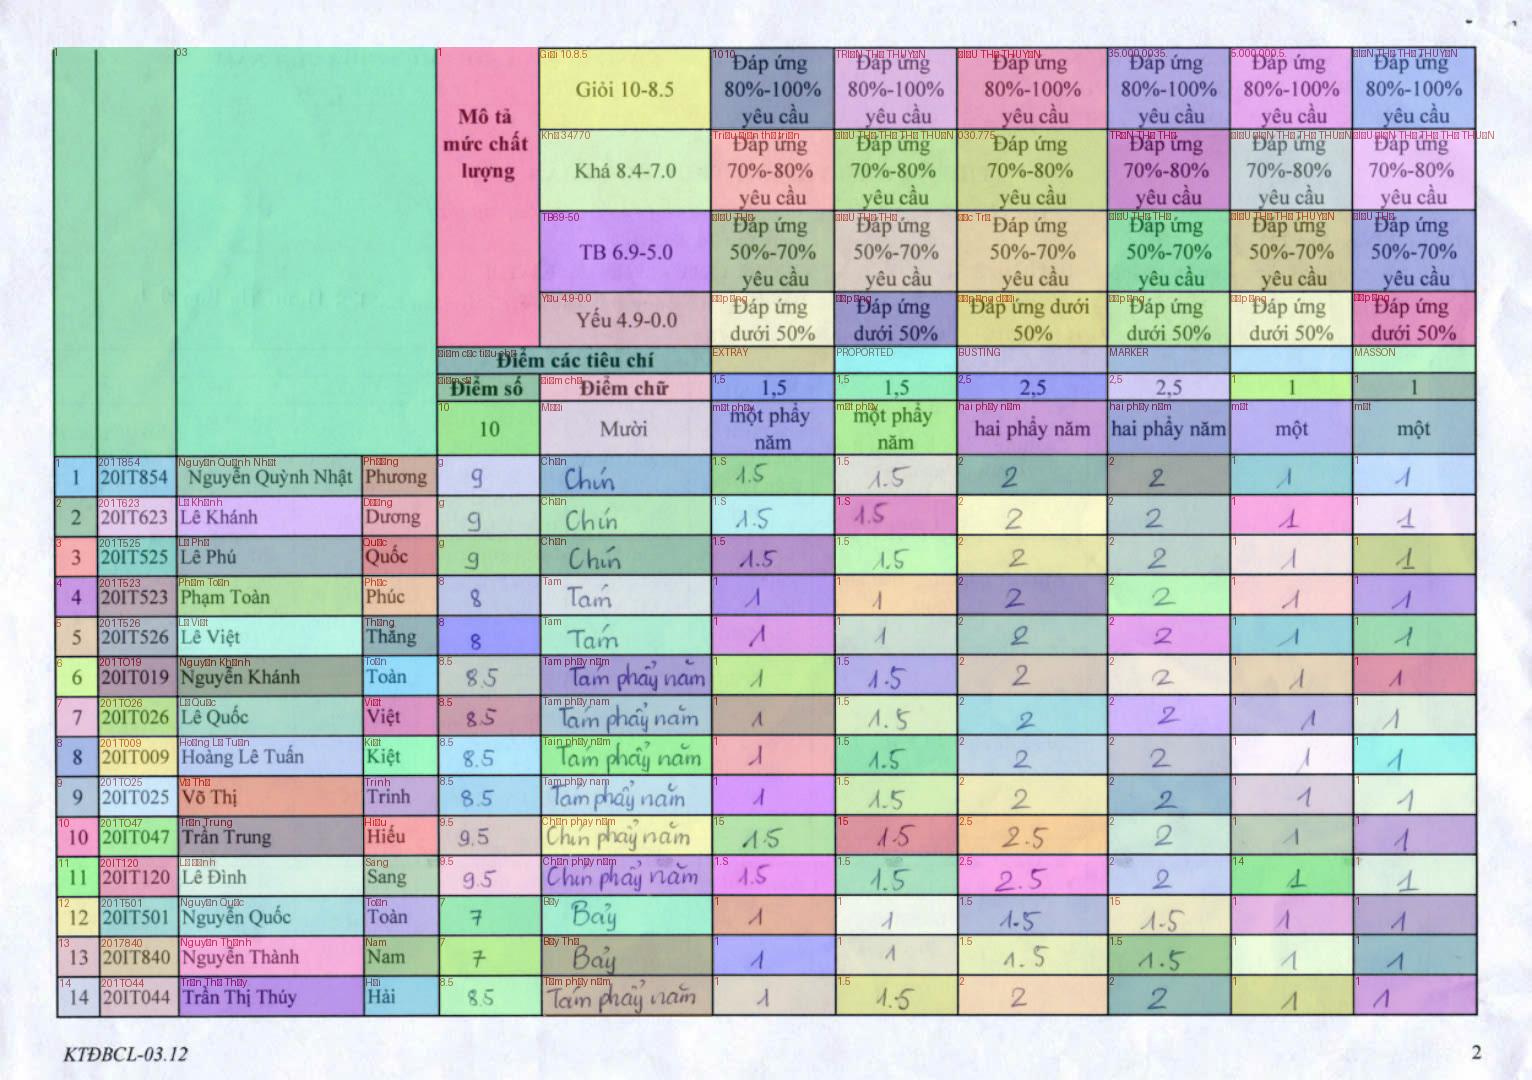 Mô tả mức chất lượng
Giỏi 10-8.5 Đáp ứng 80%-100% yêu cầu Đáp ứng 80%-100% yêu cầu Đáp ứng 80%-100% yêu cầu Đáp ứng 80%-100% yêu cầu Đáp ứng 80%-100% yêu cầu Đáp ứng 80%-100% yêu cầu
Khá 8.4-7.0 Đáp ứng 70%-80% yêu cầu Đáp ứng 70%-80% yêu cầu Đáp ứng 70%-80% yêu cầu Đáp ứng 70%-80% yêu cầu Đáp ứng 70%-80% yêu cầu Đáp ứng 70%-80% yêu cầu
TB 6.9-5.0 Đáp ứng 50%-70% yêu cầu Đáp ứng 50%-70% yêu cầu Đáp ứng 50%-70% yêu cầu Đáp ứng 50%-70% yêu cầu Đáp ứng 50%-70% yêu cầu Đáp ứng 50%-70% yêu cầu
Yếu 4.9-0.0 Đáp ứng dưới 50% Đáp ứng dưới 50% Đáp ứng dưới 50% Đáp ứng dưới 50% Đáp ứng dưới 50% Đáp ứng dưới 50%
Điểm các tiêu chí EXTRAY PROPORTED BUSTING MARKER MASSON
Điểm số Điểm chữ 1,5 1,5 2,5 2,5 1 1
10 Mười một phẩy năm một phẩy năm hai phẩy năm hai phẩy năm một một
1 20IT854 Nguyễn Quỳnh Nhật Phương 9 Chín 1.5 1.5 2 2 1 1
2 20IT623 Lê Khánh Dương 9 Chín 1.5 1.5 2 2 1 1
3 20IT525 Lê Phú Quốc 9 Chín 1.5 1.5 2 2 1 1
4 20IT523 Phạm Toàn Phúc 8 Tám 1 1 2 2 1 1
5 20IT526 Lê Việt Thăng 8 Tám 1 1 2 2 1 1
6 20IT019 Nguyễn Khánh Toàn 8.5 Tám phẩy năm 1 1.5 2 2 1 1
7 20IT026 Lê Quốc Việt 8.5 Tám phẩy năm 1 1.5 2 2 1 1
8 20IT009 Hoàng Lê Tuấn Kiệt 8.5 Tám phẩy năm 1 1.5 2 2 1 1
9 20IT025 Võ Thị Trinh 8.5 Tám phẩy năm 1 1.5 2 2 1 1
10 20IT047 Trần Trung Hiếu 9.5 Chín phẩy năm 1.5 1.5 2.5 2 1 1
11 20IT120 Lê Đình Sang 9.5 Chín phẩy năm 1.5 1.5 2.5 2 1 1
12 20IT501 Nguyễn Quốc Toàn 7 Bảy 1 1 1.5 1.5 1 1
13 20IT840 Nguyễn Thành Nam 7 Bảy 1 1 1.5 1.5 1 1
14 20IT044 Trần Thị Thúy Hải 8.5 Tám phẩy năm 1 1.5 2 2 1 1
KTĐBCL-03.12 2